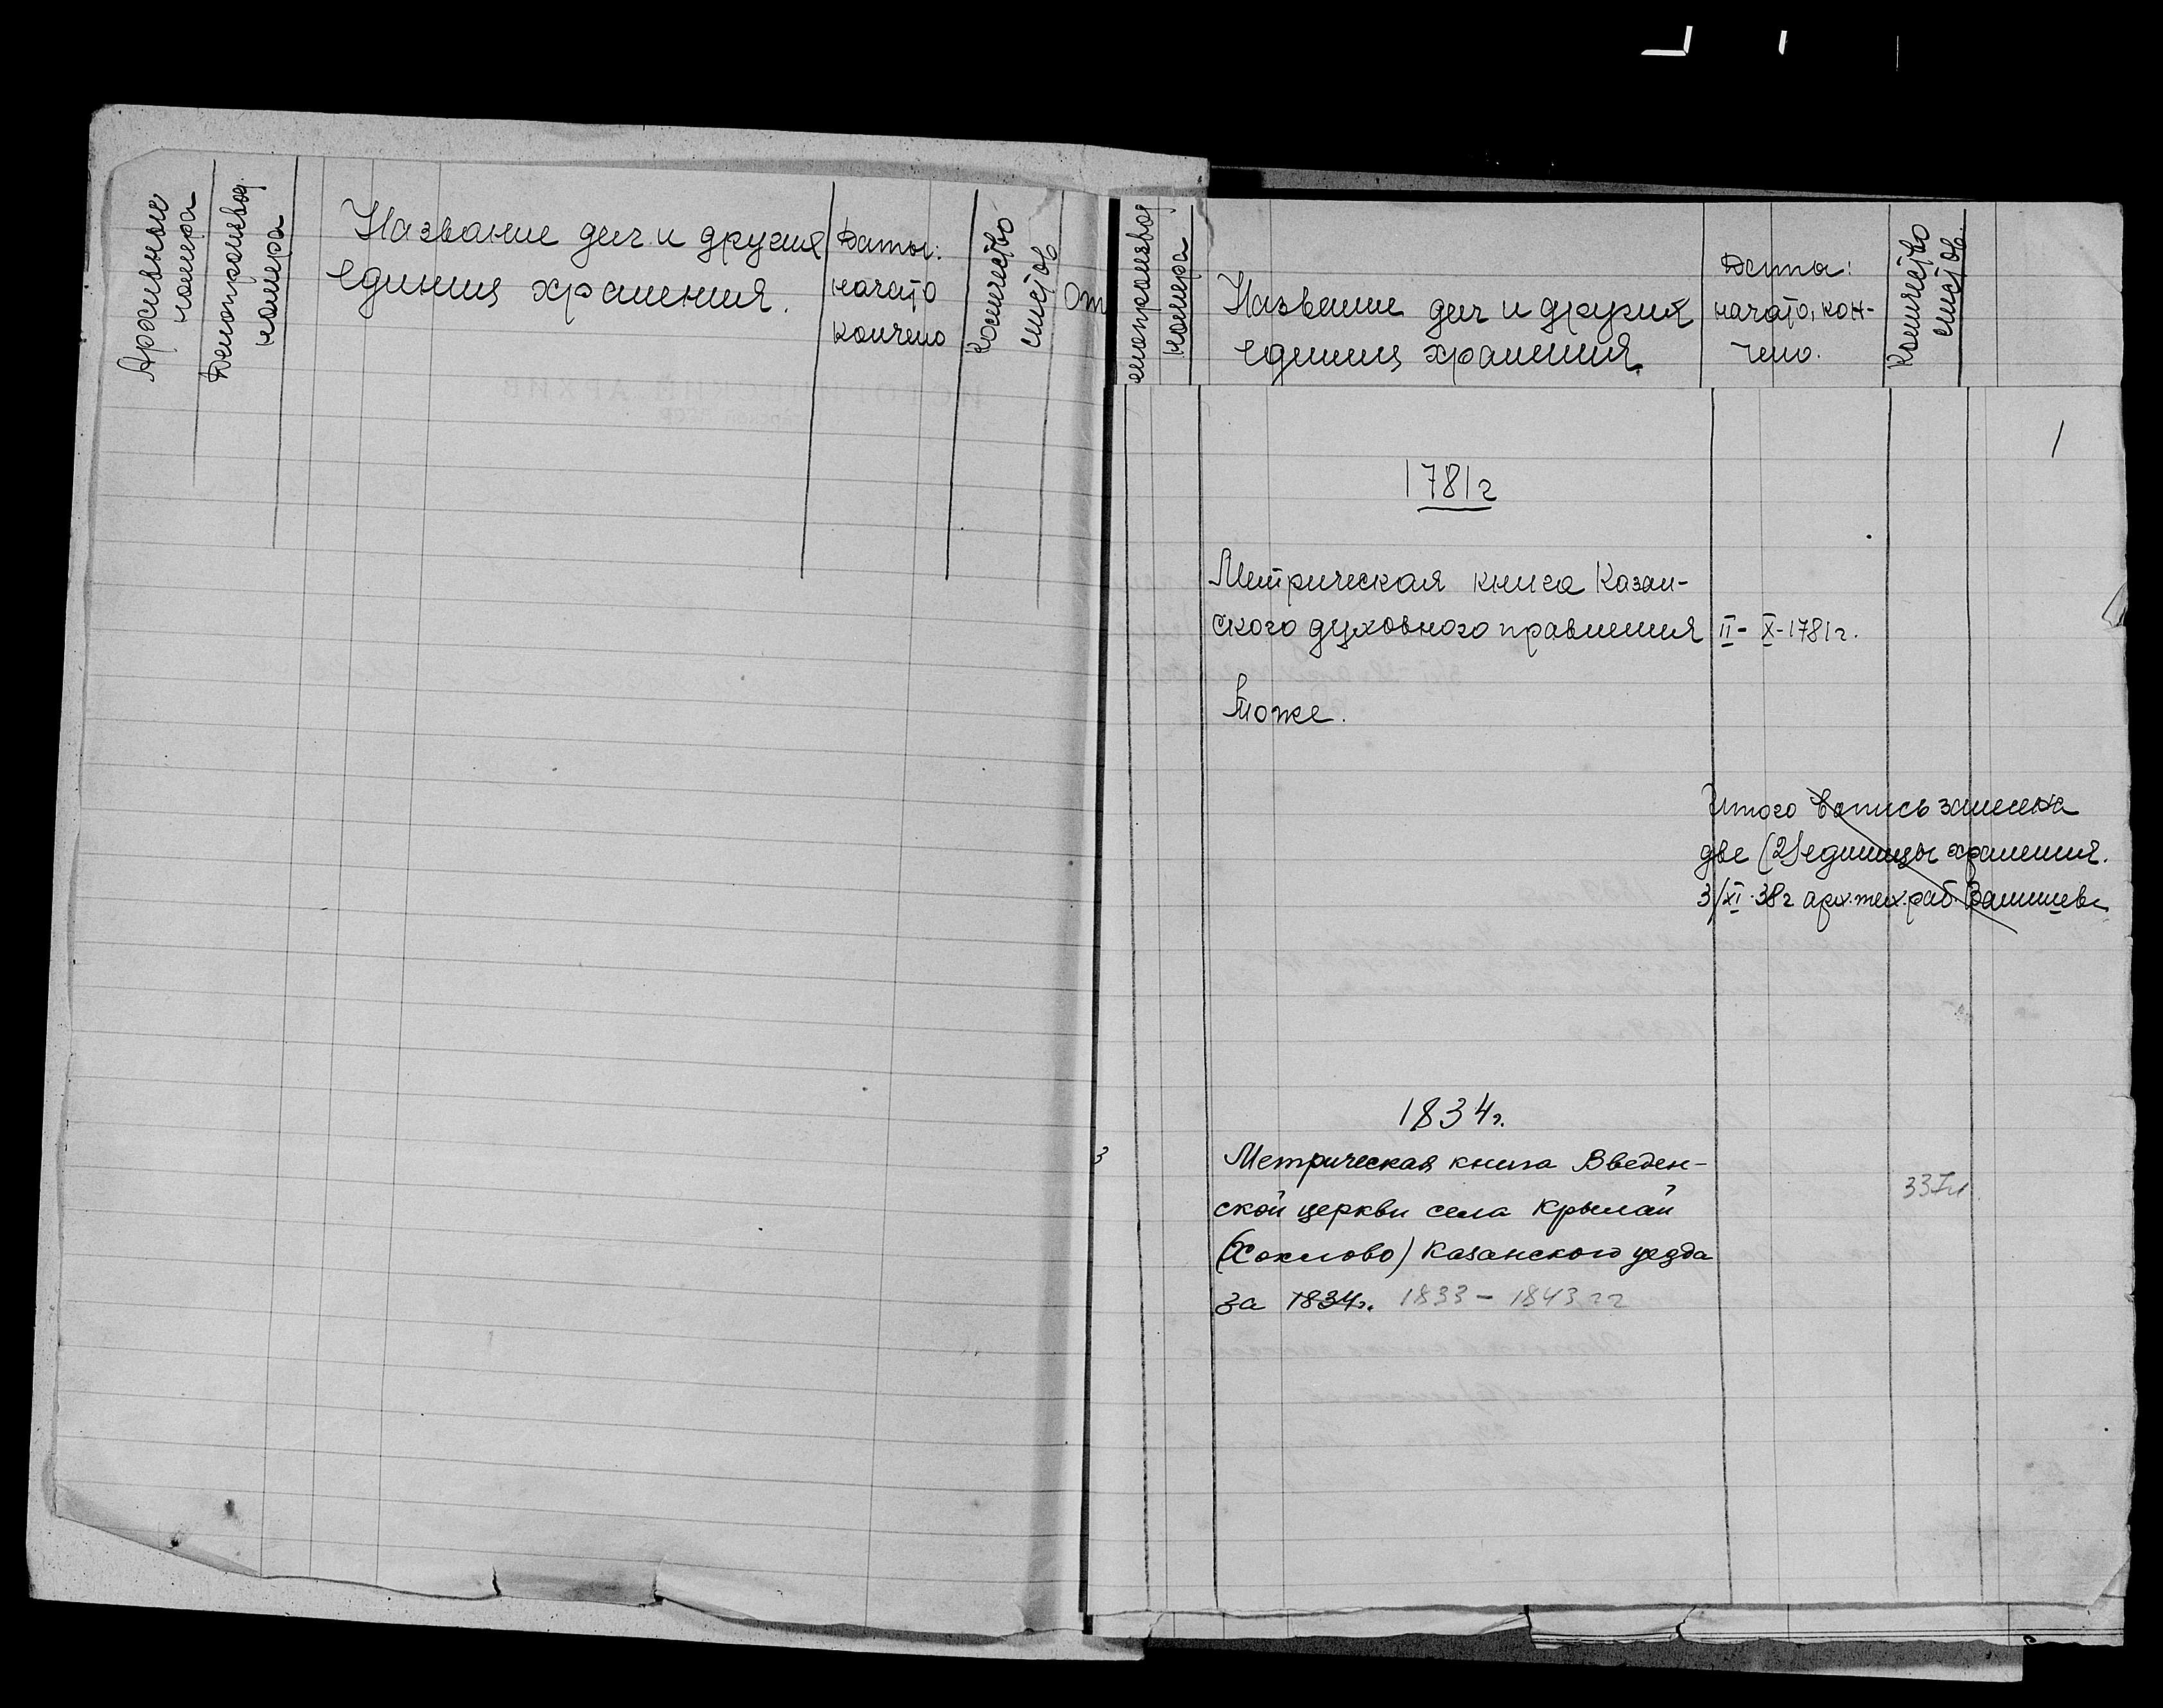 Архивные
номера
Делопроизвод.
номера
Название дел и других
единиц хранения.
Даты:
начато
кончено
Количество
листов
От
номера
Название дел и других
единиц хранения.
Дата:
начато, кон-
чено.
Количество
листов.
1
1781г
Метрическая книга Казан-
ского духовного правления
II - X - 1781г.
Тоже.
Итого в опись занесена
две (2) единицы хранения.
3/XI-38г арх.тех.раб.
1834г.
3
Метрическая книга Введен-
ской церкви села Крылай
(Хохлово) Казанского уезда
за 1834г. 1833 - 1843 гг
337л.